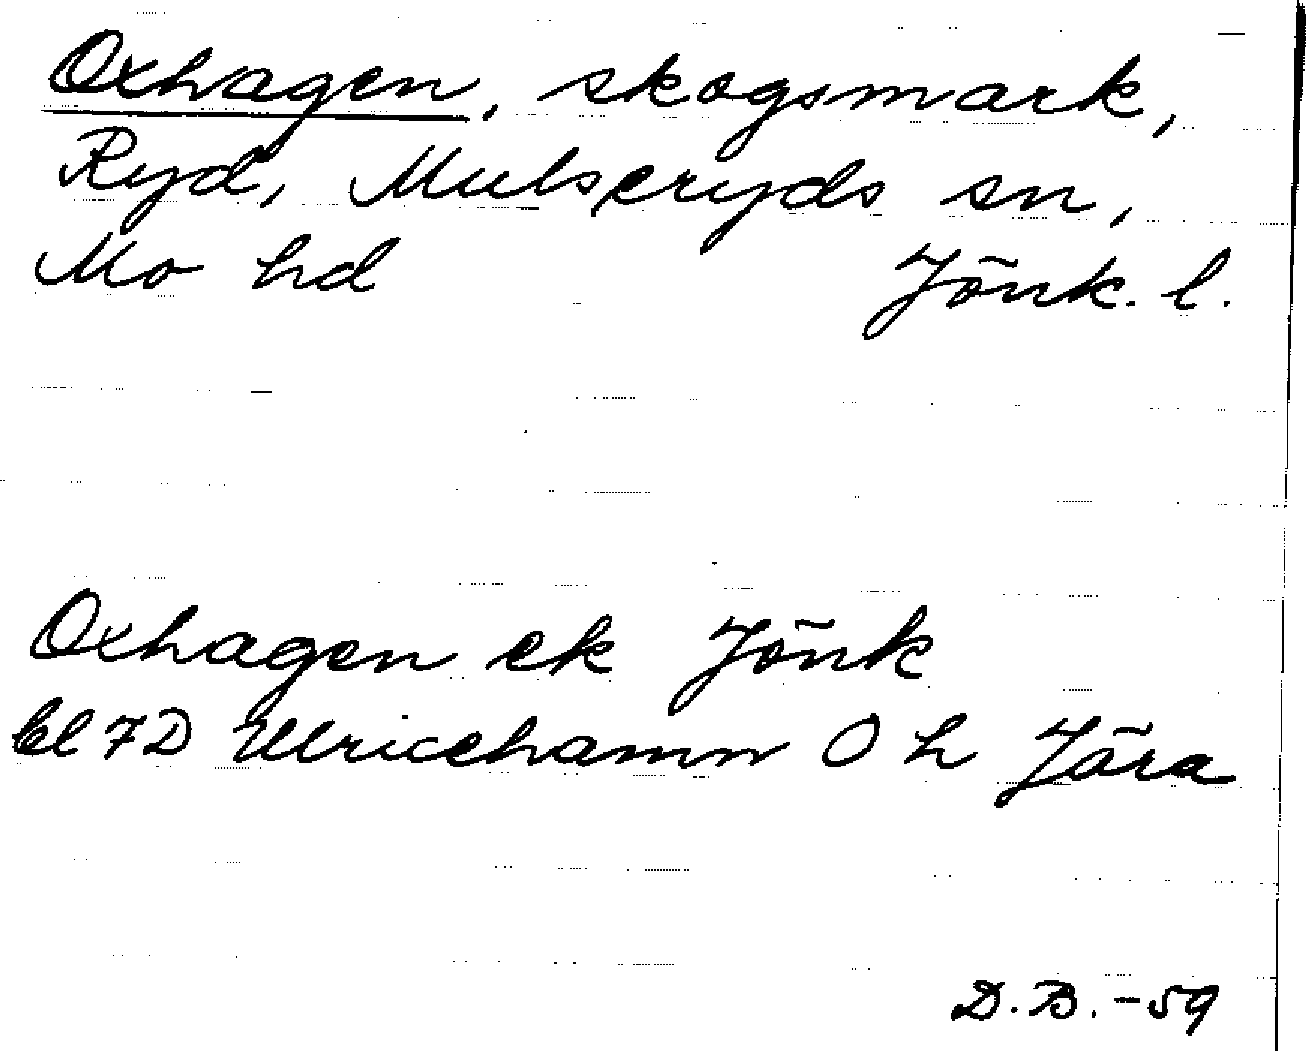 Oxhagen, skogsmark,
Ryd, Mulseryds sn,
Mo hd Jönk. l.
Oxhagen ek Jönk
bl 7D Ulricehamn O h Jära
D.B.-59